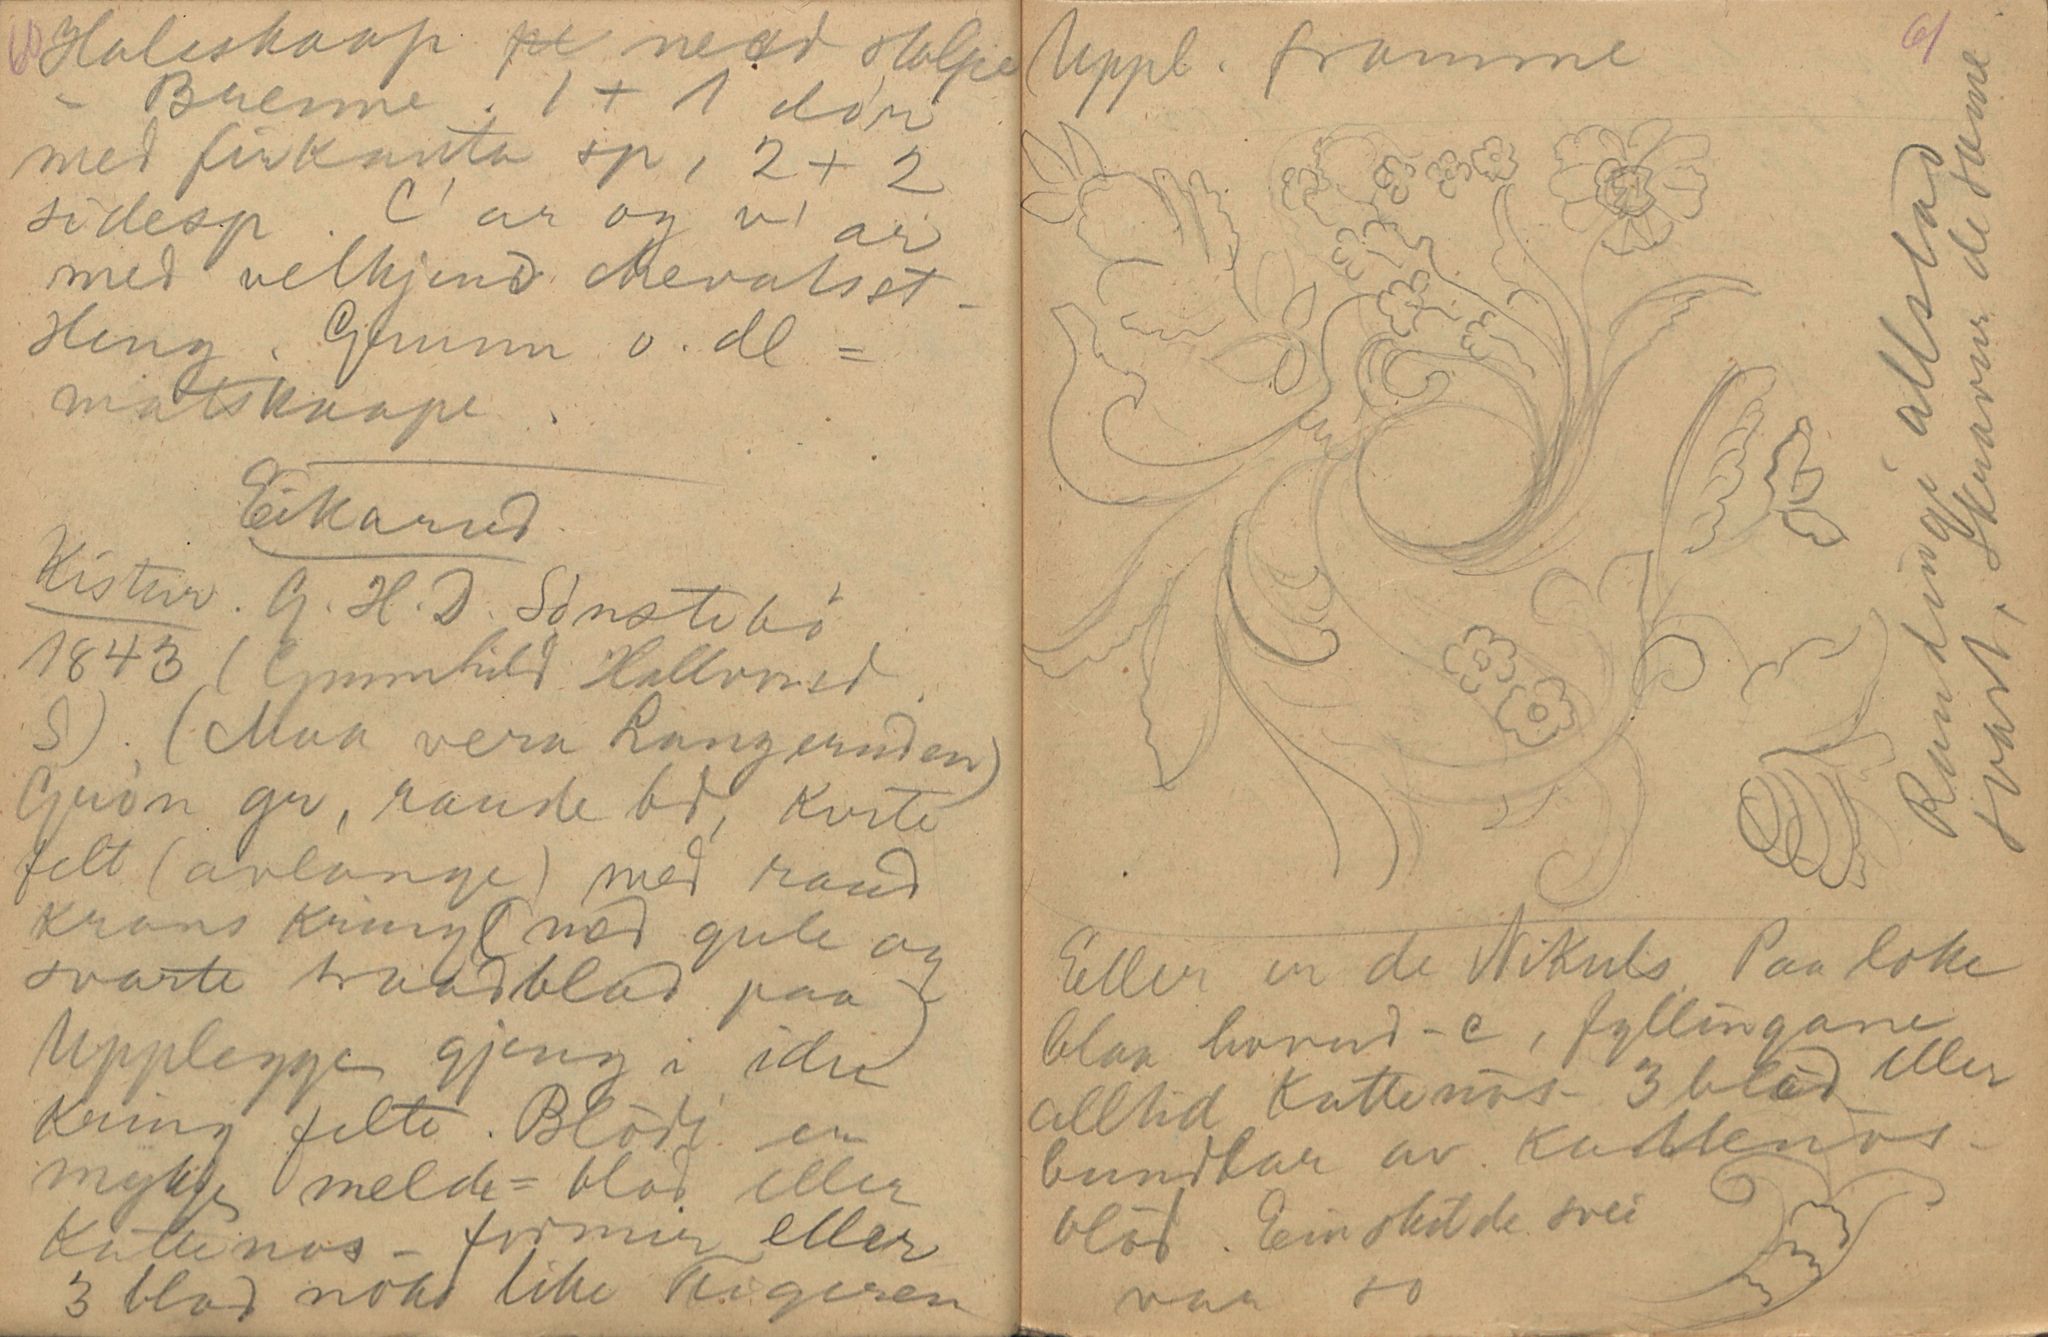 60
Haleskaap med stolpe
- Brenne. 1 + 1 dör
med firkanta sp, 2 + 2
sidesp. C ar og v ar
med velkjend
Heng. Grunn o. dl =
matskaape.
Eikarud
Kistur. G. H. D. Sönstebö
1843 (Gunnhild Hallvorsd.
S). (Maa vera Langeruden)
Grön gr, raude bd, kvite
felt (avlange) med raud
krans kring (med gule og
svarte traadblad paa)
Upplegge gjeng i idu
kring felte. Blödi er
mykje melde= blad eller
Kattenos- formir eller
3 blad noko like Tigeren
Uppl. framme
61
Rundingi allstad
svart, skuavur de same
Eller er de Nikuls. Paa loke
blaa hovud - c, fyllingane
alltid Kattenos- 3 blad eller
bundlar av Kattenos-
blöd. Einskilde svei
var so